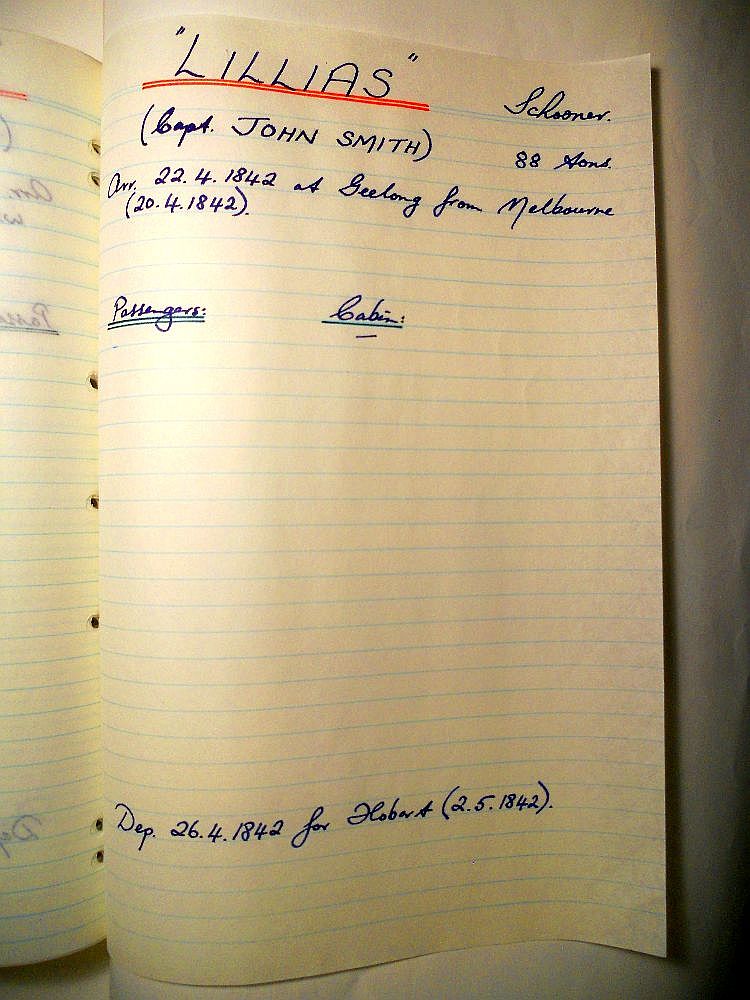 "LILLIAS"
Schooner.
(Capt. JOHN SMITH)
88 tons.
Arr. 22.4.1842 at Geelong from Melbourne
(20.4.1842).
Passengers: Cabin:
—
Dep. 26.4.1842 for Hobart (2.5.1842).